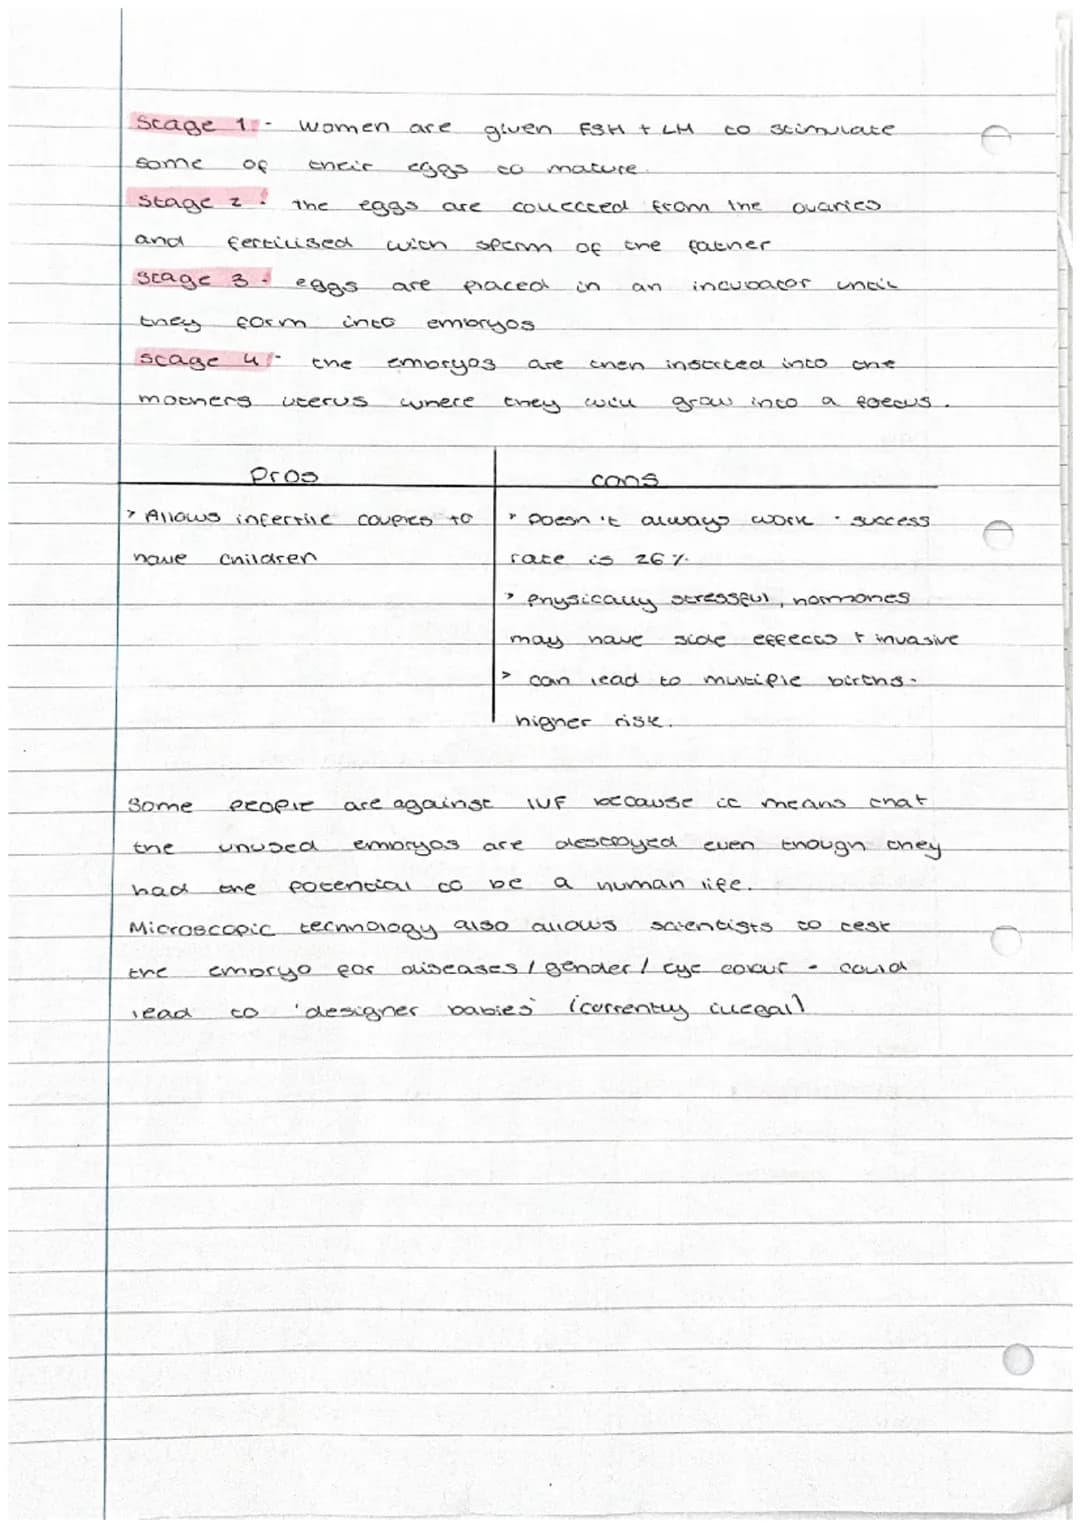 Stage 1:- women are given FSH + LH to stimulate
some of their eggs to mature.
Stage 2: the eggs are collected from the ovaries
and fertilised with sperm of the father
Stage 3: eggs are placed in an incubator until
they form into embryos
Stage 4:- the embryos are then inserted into the
mothers uterus where they will grow into a foetus.
Pros
> Allows infertile couples to
have children
cons
> Doesn't always work · success
rate is 26%.
> Physically stressful, hormones
may have side effects + invasive
> can lead to multiple births-
higher risk.
Some people are against IVF because it means that
the unused embryos are destroyed even though they
had the potential to be a human life.
Microscopic technology also allows scientists to test
the embryo for diseases / gender / eye colour - could
lead to 'designer babies' (currently illegal)